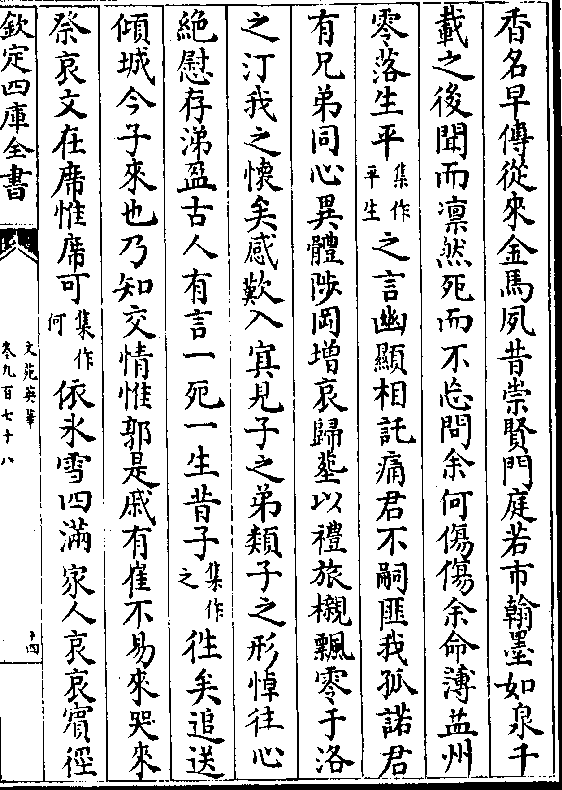 香名早傳從來金馬夙昔崇賢門庭若市翰墨如泉千
載之後聞而凛然死而不忘問余何傷傷余命薄益州
零落生平集作平生之言幽顯相託痛君不嗣匪我孤諾君
有兄弟同心異體陟岡增哀歸塟以禮旅櫬飄零于洛
之汀我之懷矣感歎入寘見子之弟類子之形悼往心
絶慰存涕盈古人有言一死一生昔子集作之徃矣追送
傾城今子來也乃知交情惟郭是戚有崔不易來哭來
祭哀文在席惟席可集作何依氷雪四滿家人哀哀賓徑
欽定四庫全書
文苑英華
卷九百七十八
十四